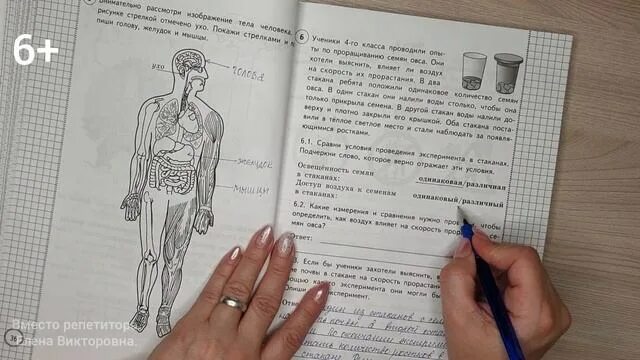 6+
внимательно рассмотри изображение тела человека.
рисунке стрелкой отмечено ухо. Покажи стрелками и
пиши голову, желудок и мышцы.
ухо
голова
желудок
мышцы
6
Ученики 4-го класса проводили опы-
ты по проращиванию семян овса. Они
хотели выяснить, влияет ли воздух
на скорость их прорастания. В два
стакана ребята положили одинаковое количество семян
овса. В один стакан они налили воды столько, чтобы она
только прикрыла семена. В другой стакан воды налили до-
верху и плотно закрыли его крышкой. Оба стакана поста-
вили в тёплое светлое место и стали наблюдать за появля-
ющимися ростками.
6.1. Сравни условия проведения эксперимента в стаканах.
Подчеркни слово, которое верно отражает эти условия.
Освещённость семян
в стаканах: одинаковая/различная
Доступ воздуха к семенам
в стаканах: одинаковый/различный
6.2. Какие измерения и сравнения нужно чтобы
определить, как воздух влияет на скорость
мян овса?
Ответ:
Если бы ученики захотели выяснить,
почвы в стакане на скорость прорастания
какого эксперимента они могли бы
эксперимент.
из стаканов
почвы, а второй
По окончании
количество ростков в
стакане
Вместо репетитора.
Елена Викторовна.